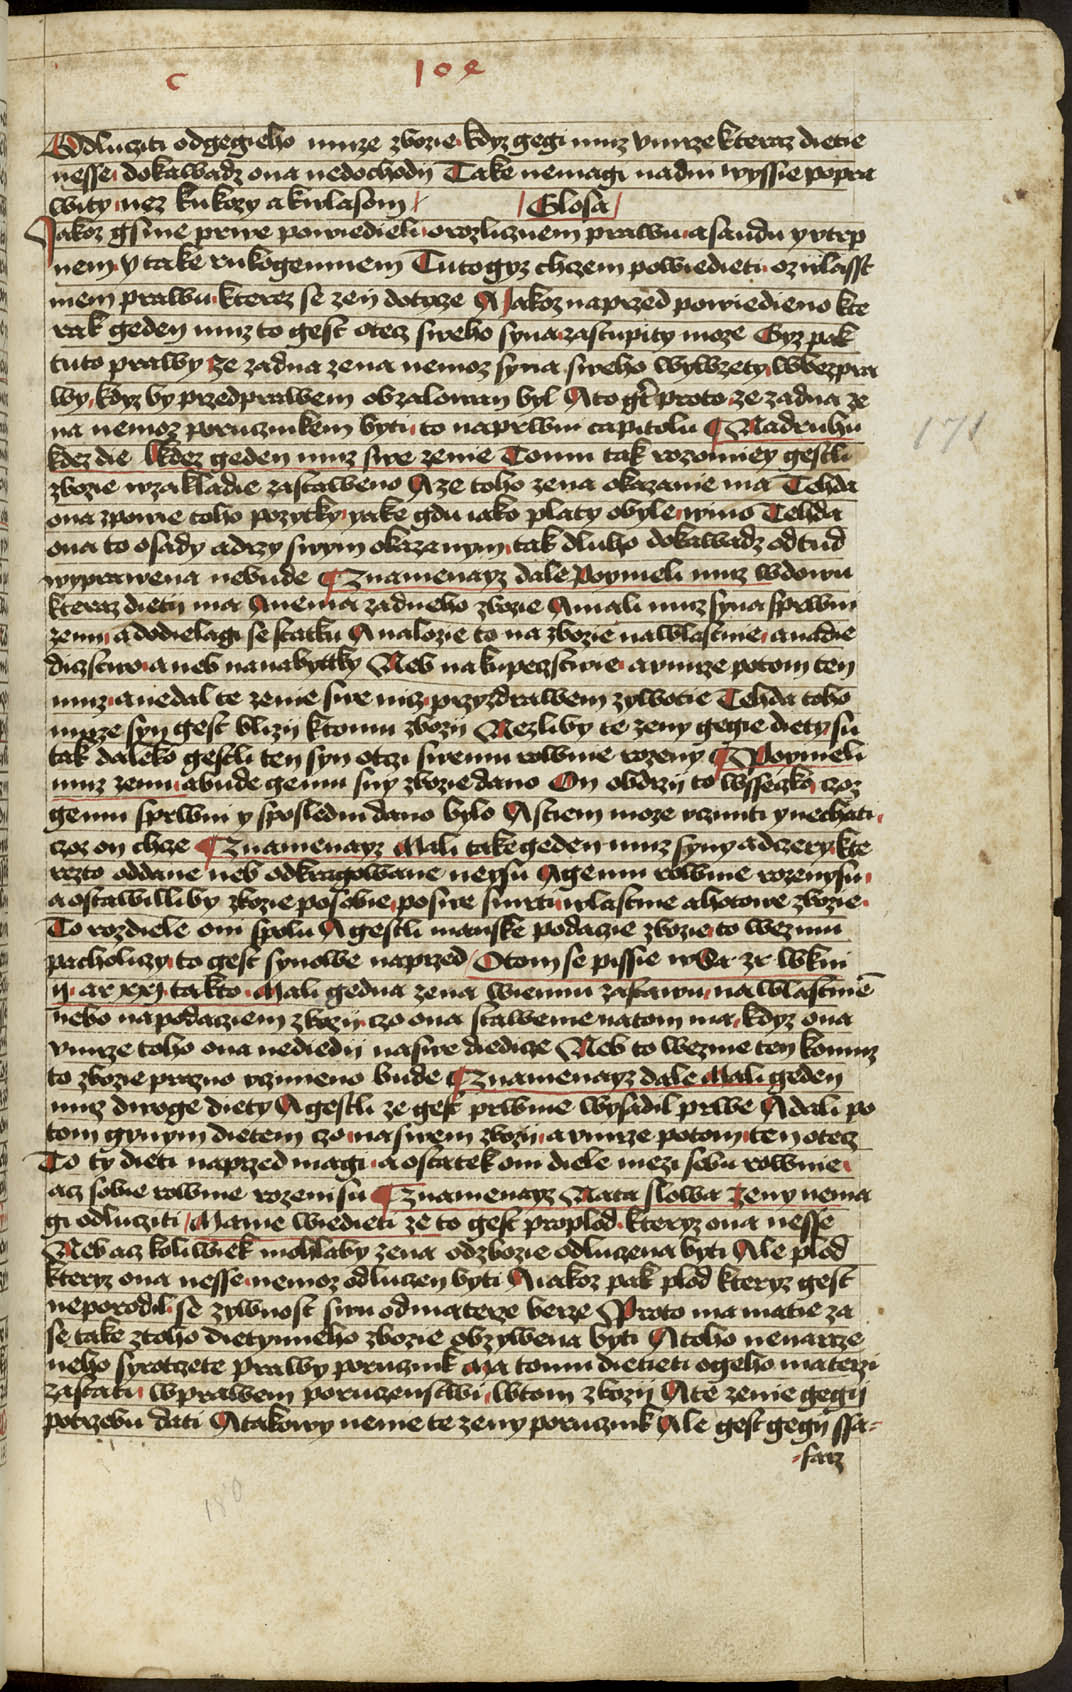 c 10e
Odlucziti odgegieho muze zbozie kdyz gegi muz vmrze kteraz dietie
nesse dokawadz ona nedochodij Take nemagi nadni wyssie popra
wity nez kukozy a kwlasom Glosa
Jakoz gsme prwe powiedieli orozlicznem prawu a saudu y vtrp
nem y take rukogemniem Tuto gyz chczem powiedieti o zwlasst
niem prawu kterez se zen dotycze A Jakoz naprzed powiedieno kte
rak geden muz to gest otecz sweho syna zastupity moze Gyz pak
tuto prawy ze zadna zena nemoz syna sweho wywzety wbezpra
wy kdyz by przedprawem obzalowan byl A to gest proto ze zadna ze
na nemoz porucznikem byti to naprwni capitolu Nadruhu
kdez die kdez geden muz swe zenie Tomu tak rozomiey gestli
zbozie wzakladie zastaweno A ze toho zena okazanie ma Tehda
ona zpowie toho pozytky yake gdu iako platy obyle wino Tehda
ona to osady adrzy swym okazanym tak dluho dokawadz odtud
wyprawena nebude Znamenayz dale Poymeli muz wdowu
kteraz dietij ma A nema zadneho zbozie A mali muz syna sprwni
zenu a dodielagi se statku A nalozie to na zbozie nawlastnie a nadie
diczstwo a neb nanabytky Neb na kupeczstwie a vmrze potom ten
muz a nedal te zenie swe nicz przyzdrawem zywotie Tehda toho
muze syn gest blizij ktomu zbozij Nezliby te zeny gegie diety su
tak daleko gestli ten syn otczi swemu rownie rozeny Poymeli
muz zenu a bude gemu sny zbozie dano On obdrzij to wsseczko czoz
gemu sprwni y sposledni dano bylo A stiem moze vcziniti y nechati
czoz on chcze Znamenayz Mali take geden muz syny a dczery kte
rezto oddane neb odkragowane neysu A gemu rownie rozeny su
a ostawilliby zbozie po sobie po swe smrti wlastnie a hotowe zbozie
To rozdiele oni spolu A gestli manske podaczie zbozie to wezmu
pacholiczy to gest synowe naprzed Otom se pissie
ij ar xxj takto Mali gedna zena wiemu zastawu nawlastnie
nebo napodacziem zbozij czo ona stawenie natom ma kdyz ona
vmrze toho ona nediedij naswe diedicze Neb to wezme ten komuz
to zbozie prazno vczineno bude Znamenayz dale Mali geden
muz dwoge diety A gestli ze gest prwnie wysadil prwe A dali po
tom gynym dietem czo naswem zbozij a vmrze potom ten otecz
To ty dieti naprzed magi a ostatek oni diele mezi sebu rownie
acz sobie rownie rozeni su Znamenayz Nata slowa Zeny nema
gi odlucziti Mame wiedieti ze to gest proplod kteryz ona nesse
Neb acz koliwiek mohlaby zena odzbozie odluczena byti Ale plod
kteryz ona nesse nemoz odluczen byti A iakoz pak plod kteryz gest
neporodil se zywnost swu odmaterze berze Proto ma matie za
se take ztoho dietynnieho zbozie obzywena byti A toho nenarze
neho syrotczete prawy porucznik ma tomu dietieti o geho materzi
zastati wprawem poruczenstwi wtom zbozij A te zenie gegij
potrzebu dati A takowy nenie te zeny porucznik Ale gest gegij ssa
farz
171
180